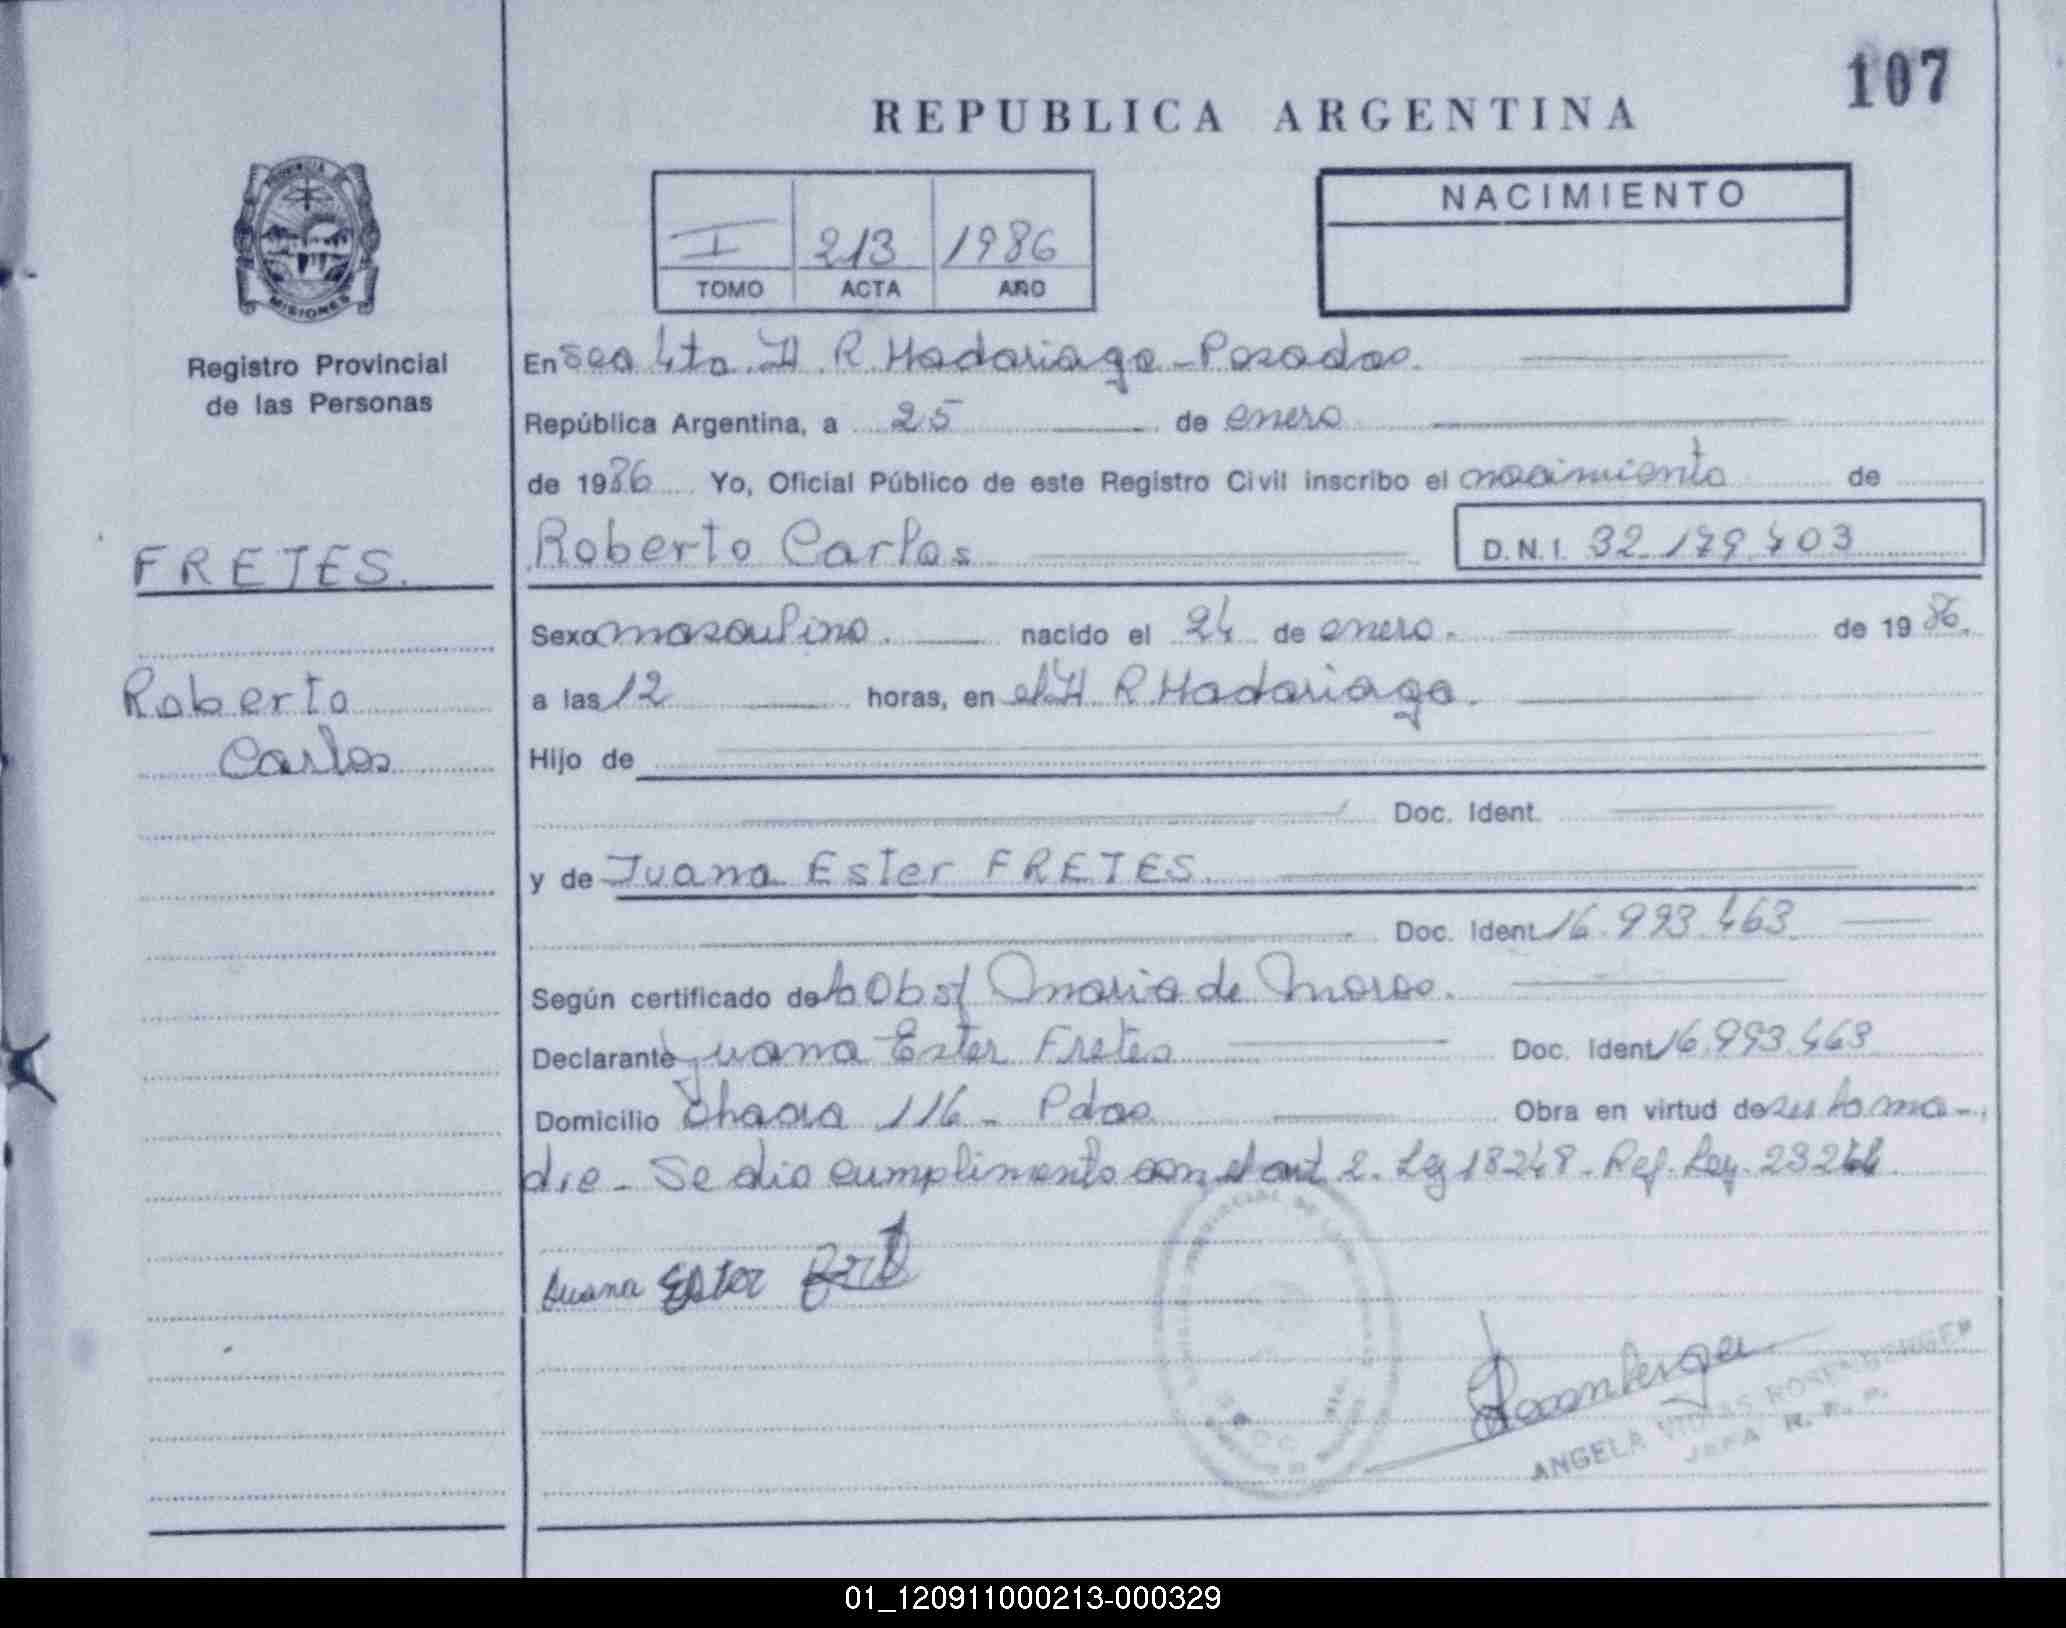 107
REPUBLICA ARGENTINA
PROVINCIA DE
MISIONES
Registro Provincial
de las Personas
I 213 1986
TOMO ACTA AÑO
NACIMIENTO
En Sea 4ta. H. R. Madariaga - Posadas.
República Argentina, a 25 de enero
de 1986 Yo, Oficial Público de este Registro Civil inscribo el nacimiento de
FRETES.
Roberto Carlos D.N.I. 32.179.403
Sexo masculino. nacido el 24 de enero. de 1986.
Roberto
Carlos
a las 12 horas, en el H. R. Madariaga.
Hijo de
Doc. Ident.
y de Juana Ester FRETES.
Doc. Ident. 16.993.463
Según certificado de la Obst. Maria de Moras.
Declarante Juana Ester Fretes Doc. Ident. 16.993.463
Domicilio Chacra 116 - Pdas Obra en virtud de ser la ma-
dre - Se dio cumplimento con el art 2. Ley 18248 - Ref. Ley. 23264
Juana Ester
Rosenberger
ANGELA ROSENBERGER
JEFA R. P. P.
01_120911000213-000329